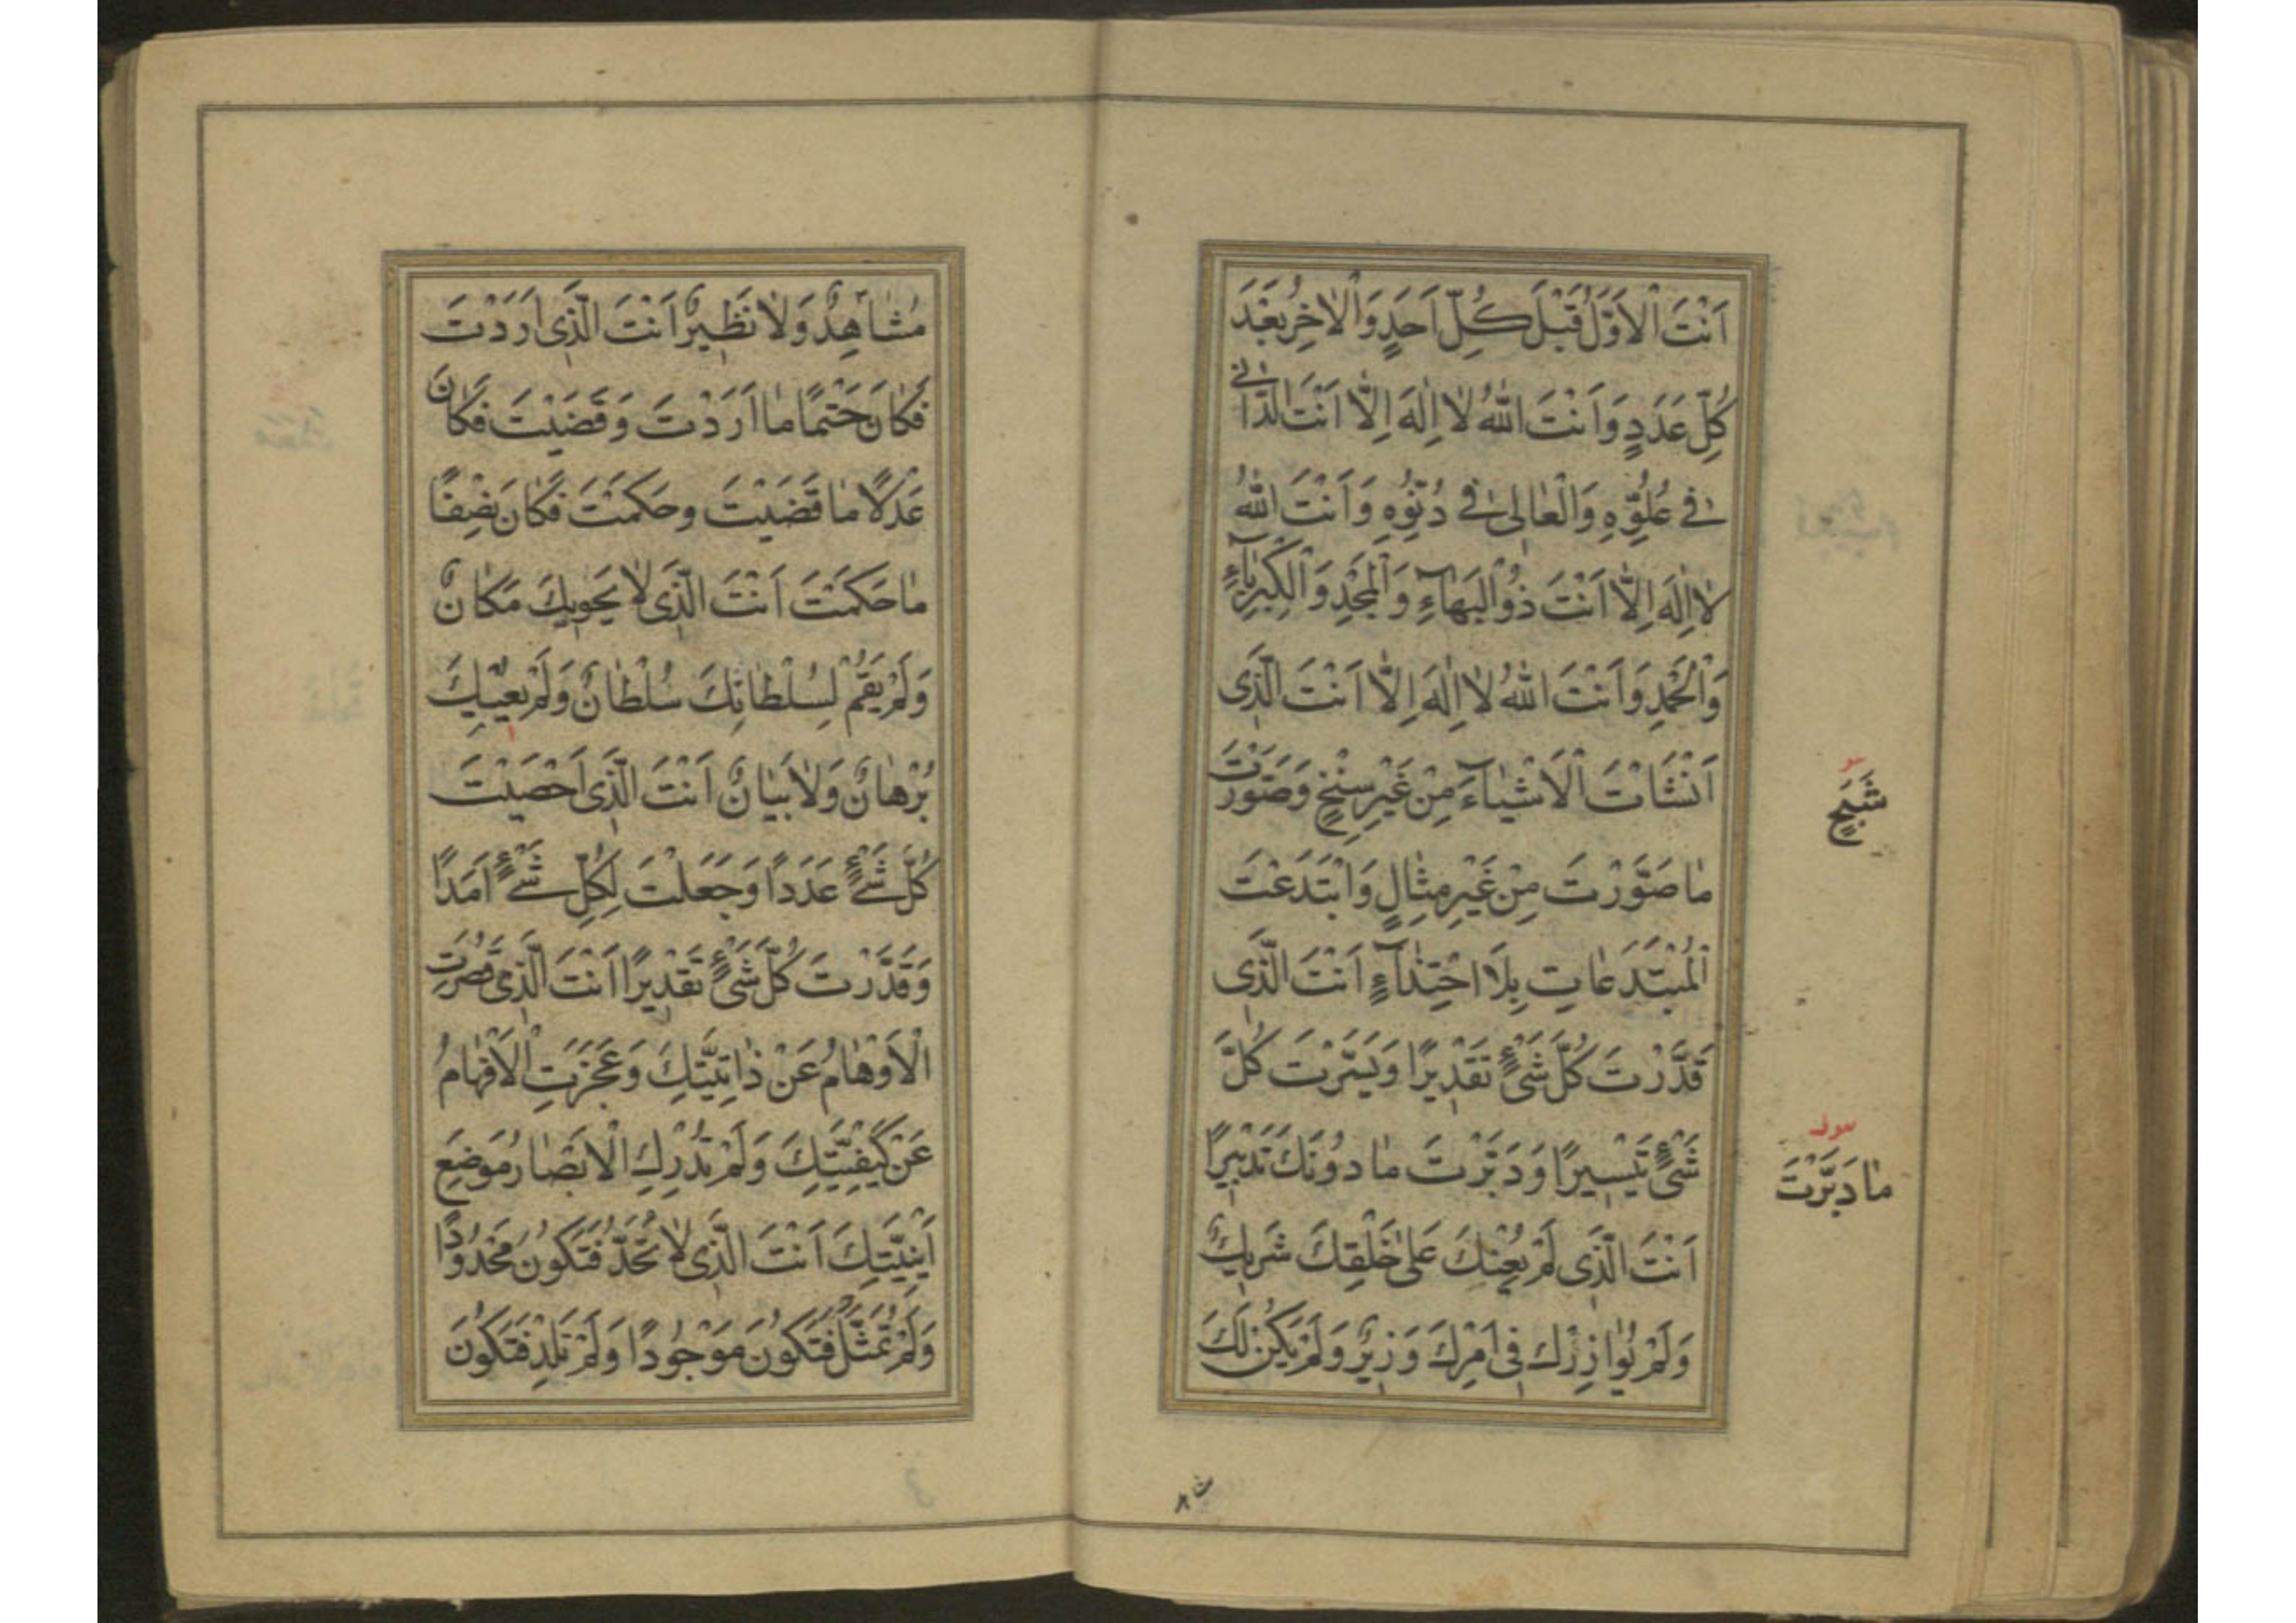 اَنْتَ الْاَوَّلُ قَبْلَ كُلِّ اَحَدٍ وَالْاٰخِرُ بَعْدَ
كُلِّ عَدَدٍ وَاَنْتَ اللهُ لَا اِلٰهَ اِلَّا اَنْتَ الدَّانِى
فِى عُلُوِّهِ وَالْعَالِى فِى دُنُوِّهِ وَاَنْتَ اللهُ
لَا اِلٰهَ اِلَّا اَنْتَ ذُو الْبَهَآءِ وَالْمَجْدِ وَالْكِبْرِيَآءِ
وَالْحَمْدِ وَاَنْتَ اللهُ لَا اِلٰهَ اِلَّا اَنْتَ الَّذِى
اَنْشَاْتَ الْاَشْيَآءَ مِنْ غَيْرِ سِنْخٍ وَصَوَّرْتَ
شَبَحٍ
مَا صَوَّرْتَ مِنْ غَيْرِ مِثَالٍ وَابْتَدَعْتَ
الْمُبْتَدَعَاتِ بِلَا احْتِذَآءٍ اَنْتَ الَّذِى
قَدَّرْتَ كُلَّ شَىْءٍ تَقْدِيرًا وَيَسَّرْتَ كُلَّ
شَىْءٍ تَيْسِيرًا وَدَبَّرْتَ مَا دُونَكَ تَدْبِيرًا
مَا دَبَّرْتَ
اَنْتَ الَّذِى لَمْ يُعِنْكَ عَلٰى خَلْقِكَ شَرِيكٌ
وَلَمْ يُوَازِرْكَ فِى اَمْرِكَ وَزِيرٌ وَلَمْ يَكُنْ لَكَ
مُشَاهِدٌ وَلَا نَظِيرٌ اَنْتَ الَّذِى اَرَدْتَ
فَكَانَ حَتْمًا مَا اَرَدْتَ وَقَضَيْتَ فَكَانَ
عَدْلًا مَا قَضَيْتَ وَحَكَمْتَ فَكَانَ نِصْفًا
مَا حَكَمْتَ اَنْتَ الَّذِى لَا يَحْوِيكَ مَكَانٌ
وَلَمْ يَقُمْ لِسُلْطَانِكَ سُلْطَانٌ وَلَمْ يُعْيِكَ
بُرْهَانٌ وَلَا بَيَانٌ اَنْتَ الَّذِى اَحْصَيْتَ
كُلَّ شَىْءٍ عَدَدًا وَجَعَلْتَ لِكُلِّ شَىْءٍ اَمَدًا
وَقَدَّرْتَ كُلَّ شَىْءٍ تَقْدِيرًا اَنْتَ الَّذِى قَصُرَتِ
الْاَوْهَامُ عَنْ ذَاتِيَّتِكَ وَعَجَزَتِ الْاَفْهَامُ
عَنْ كَيْفِيَّتِكَ وَلَمْ تُدْرِكِ الْاَبْصَارُ مَوْضِعَ
اَيْنِيَّتِكَ اَنْتَ الَّذِى لَا تُحَدُّ فَتَكُونَ مَحْدُودًا
وَلَمْ تُمَثَّلْ فَتَكُونَ مَوْجُودًا وَلَمْ تَلِدْ فَتَكُونَ